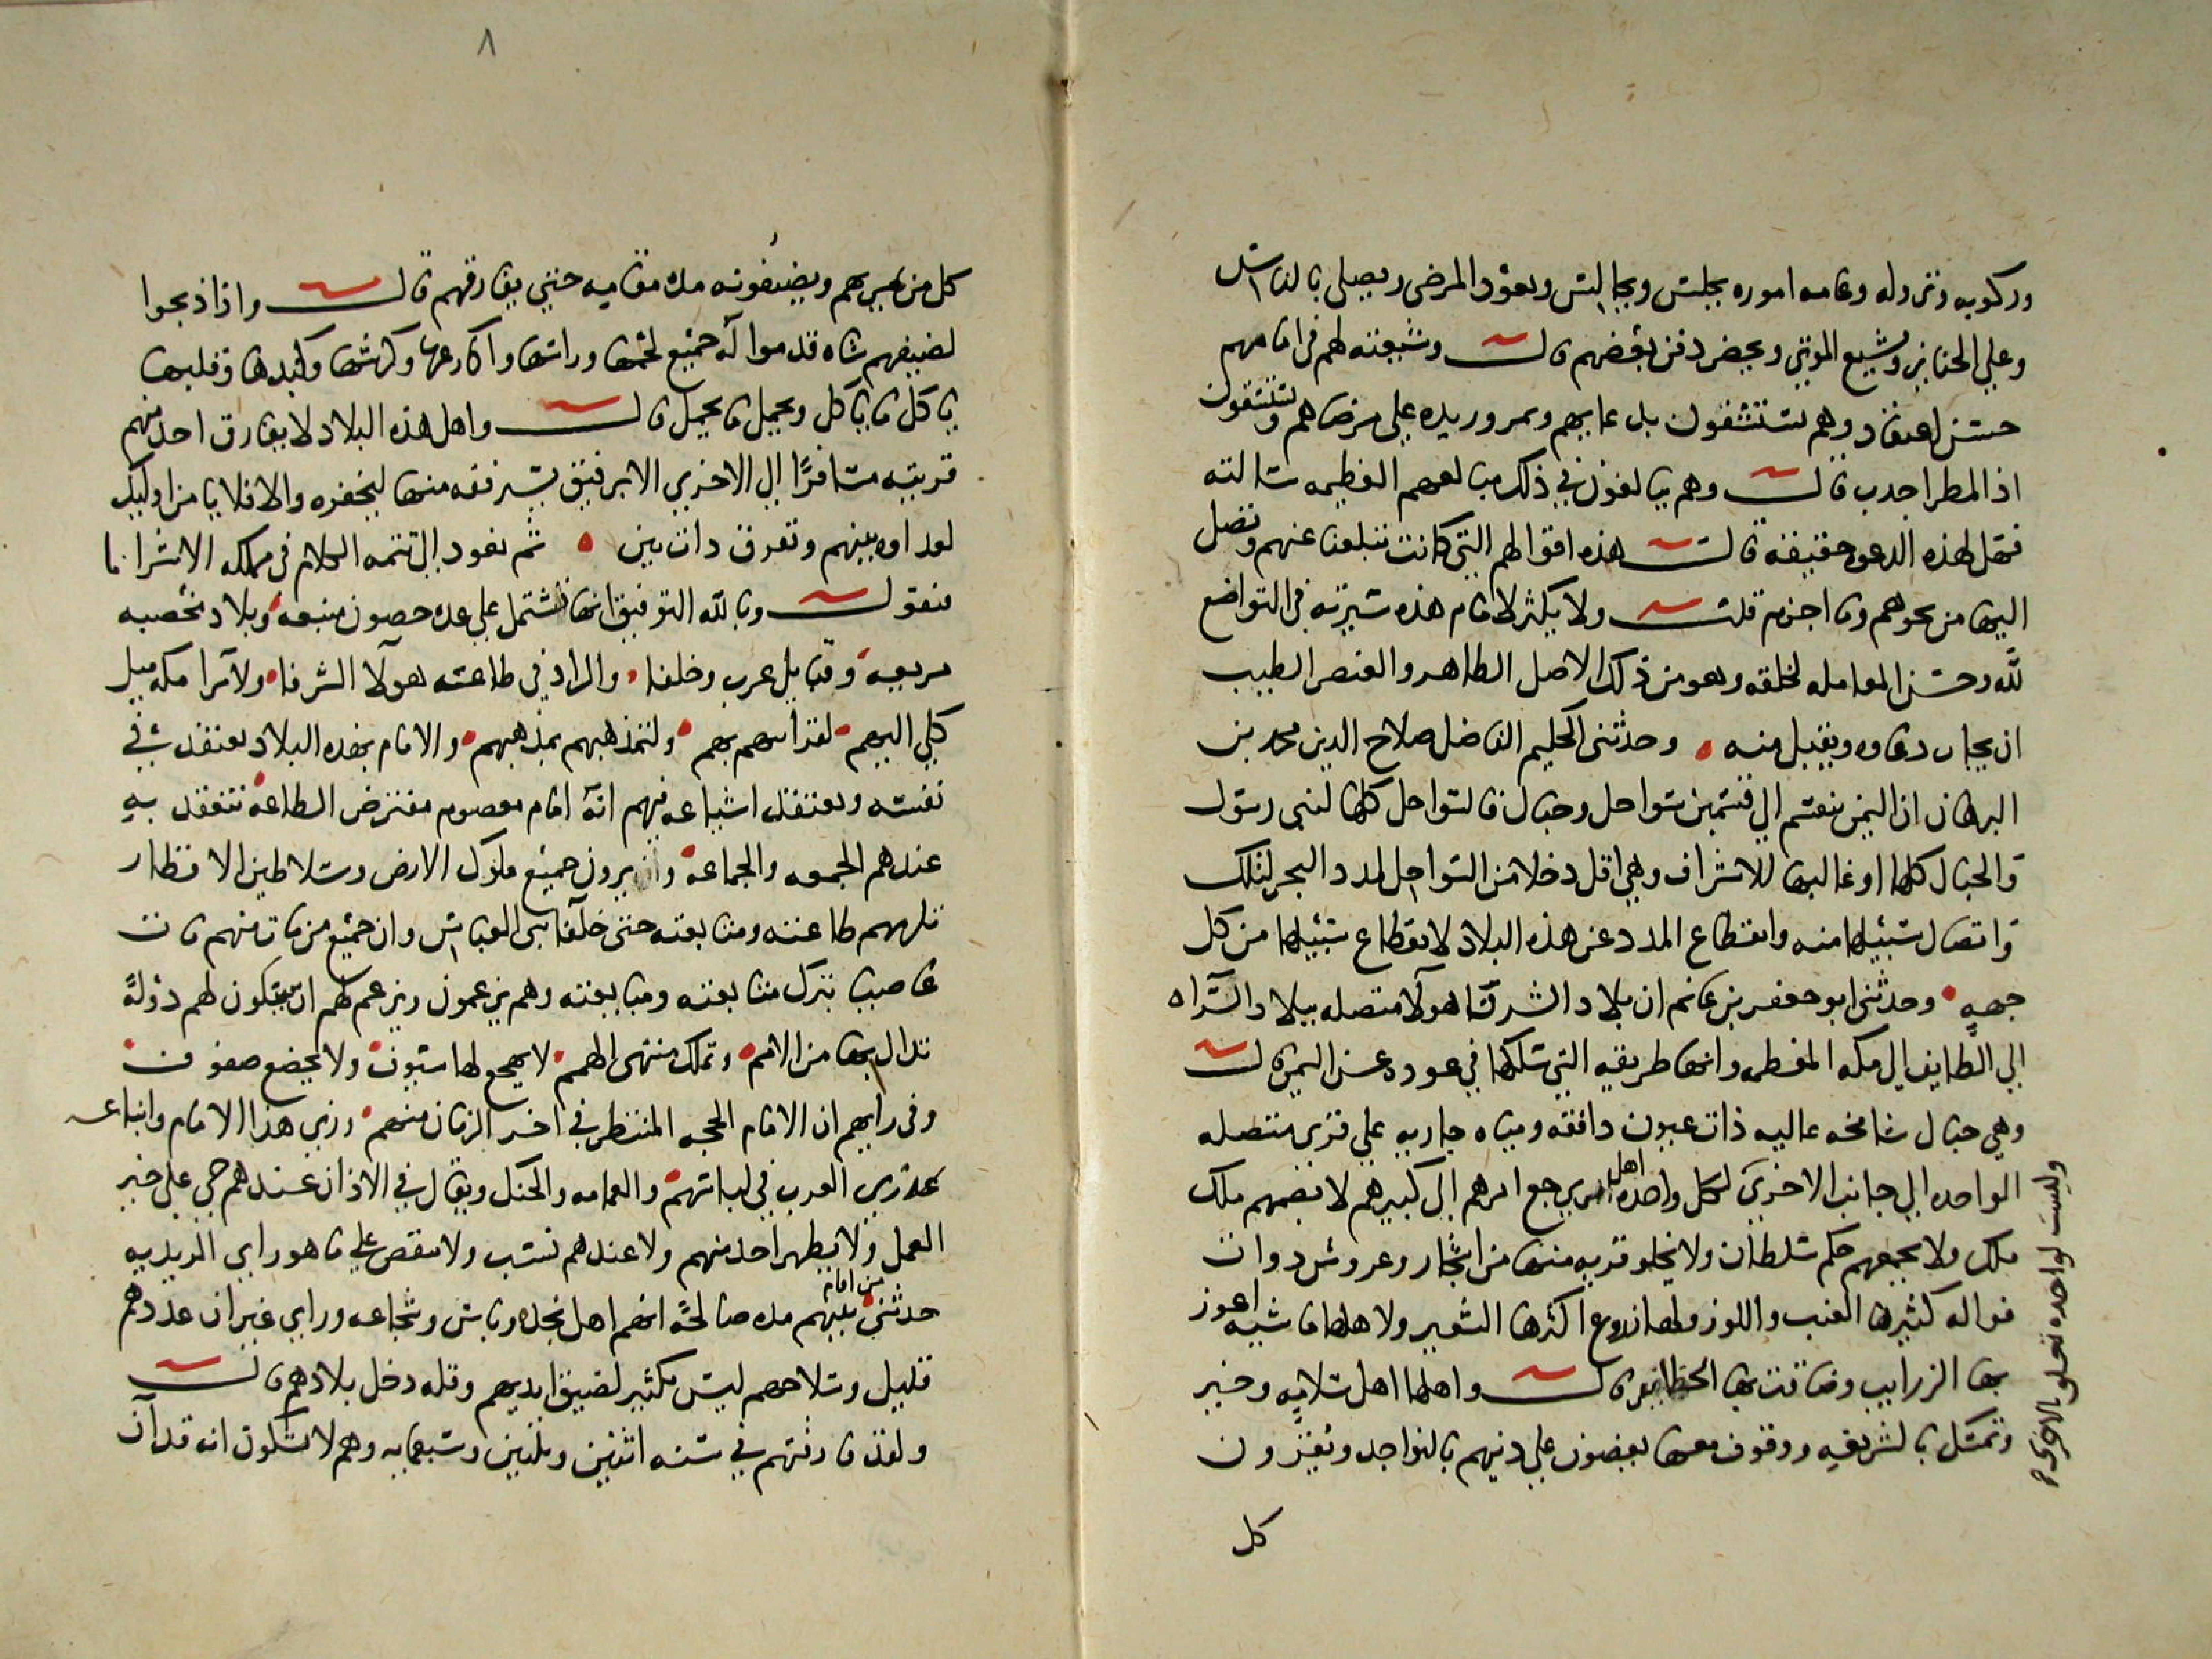 وركوبه ونزوله وعامه اموره يجلس ويجالس ويعود المرضى ويصلى بالناس
وعلي الجنايز ويشيع الموتي ويحضر دفن بعضهم قالـــــت وشيعته لهم في امامهم
حسن اعتقاد وهم يستشفون بدعايهم ويمر وريده علي مرضاهم ويستسقون
اذ المطر اجدب قالـــت وهم يبالغون في ذلك مبالغهم العظيمه سالته
فهل لهذه الدعوه حقيقه قالـــت هذه اقوالهم التي كانت تبلغنا عنهم وتصل
الينا من نحوهم وما اجزم قلت ولا يكثر لامام هذه سيرته في التواضع
لله وحسن المعامله لخلقه وهو من ذلك الاصل الطاهر والعنصر الطيب
ان يجاب دعاوه ويقبل منه وحدثنى الحكيم الفاضل صلاح الدين محمد بن
البرهان ان اليمن ينقسم الي قسمين سواحل وجبال فالسواحل كلها لبني رسول
والجبال كلها او غالبها للاشراف وهي اقل دخلا من السواحل لمدد البحر لتلك
واتصال سبيلها منه وانقطاع المدد عن هذه البلاد لانقطاع سبيلها من كل
جهه وحدثنى ابو جعفر بن غانم ان بلاد الشرفا هولا متصله ببلاد السراه
الي الطايف الي مكه المعظمه وانها طريقه التي سلكها في عوده عن اليمن قالـــت
وهي جبال شامخه عاليه ذات عيون دافقه ومياه جاريه علي قري متصله
الواحده الي جانب الاخري لكل واحده اهل يرجع امرهم الي كبيرهم لا يضمهم ملك
ملك ولا يجمعهم حكم سلطان ولا يخلو قريه منها من اشجار وعروش ذوات
فواكه كثيرها العنب واللوز ولها زروع اكثرها الشعير ولاهلها ماشيه اعوز
بها الزرايب وضاقت بها الحظاير قالـــت واهلها اهل سلامه وخير
وتمسك بالشريعه ووقوف معها يعضون علي دينهم بالنواجد ويقرون
كل
وليست لواحده تعلو بالاخرى
٨
كل من يمر بهم ويضيفونه مده مقامه حتي يفارقهم قالـــت واذا ذبحوا
لضيفهم شاه قدموا له جميع لحمها وراسها واكارعها وكرشها وكبدها وقلبها
ياكل ما ياكل ويحمل ما يحمل قالـــت واهل هذه البلاد لا يفارق احد منهم
قريته مسافرا الي الاخري الا برفيق يسترفقه منها ليخفره والا فلا يامن اوليك
لعداوه بينهم وتفرق ذات بين ثم نعود الي تتمه الكلام في مملكه الاشراف
فنقول وبالله التوفيق انها تشتمل علي عده حصون منيعه وبلاد خصيبه
مريعه وقبايل عرب وخلفا والراد في طاعته هولا الشرفا ولامرا مكه ميل
كلي اليهم لقرابتهم بهم ولتمذهبهم بمذهبهم والامام بهذه البلاد يعتقد في
نفسه ويعتقد اشياعه فيهم انه امام معصوم مفترض الطاعه تنعقد به
عندهم الجمعه والجماعه وان يرون جميع ملوك الارض وسلاطين الاقطار
تلزمهم طاعته ومتابعته حتي خلفا بني العباس وان جميع من مات منهم مات
عاصيا بترك متابعته ومبايعته وهم يزعمون ويزعم لهم ان سيكون لهم دوله
تدال بها من الامم وتملك منتهى الهمم لا يهجع لها سيوف ولا يخضع صفوف
وفي رايهم ان الامام الحجه المنتظر في اخر الزمان منهم وزي هذا الامام واتباعه
علي زي العرب في لباسهم والعمامه والحنك ويقال في الاذان عندهم حي علي خير
العمل ولا يظهر احد منهم ولا عندهم تسب ولا نقص علي ما هو راي الزيديه
حدثني من اقام بينهم مده صالحه انهم اهل نجده وباس وشجاعه وراي غير ان عددهم
قليل وسلاحهم ليس بكثير لضيق ايديهم وقله دخل بلادهم قالـــت
ولقد فارقتهم في سنه اثنتين وثلثين وسبعمايه وهم لا يشكون انه قد آن